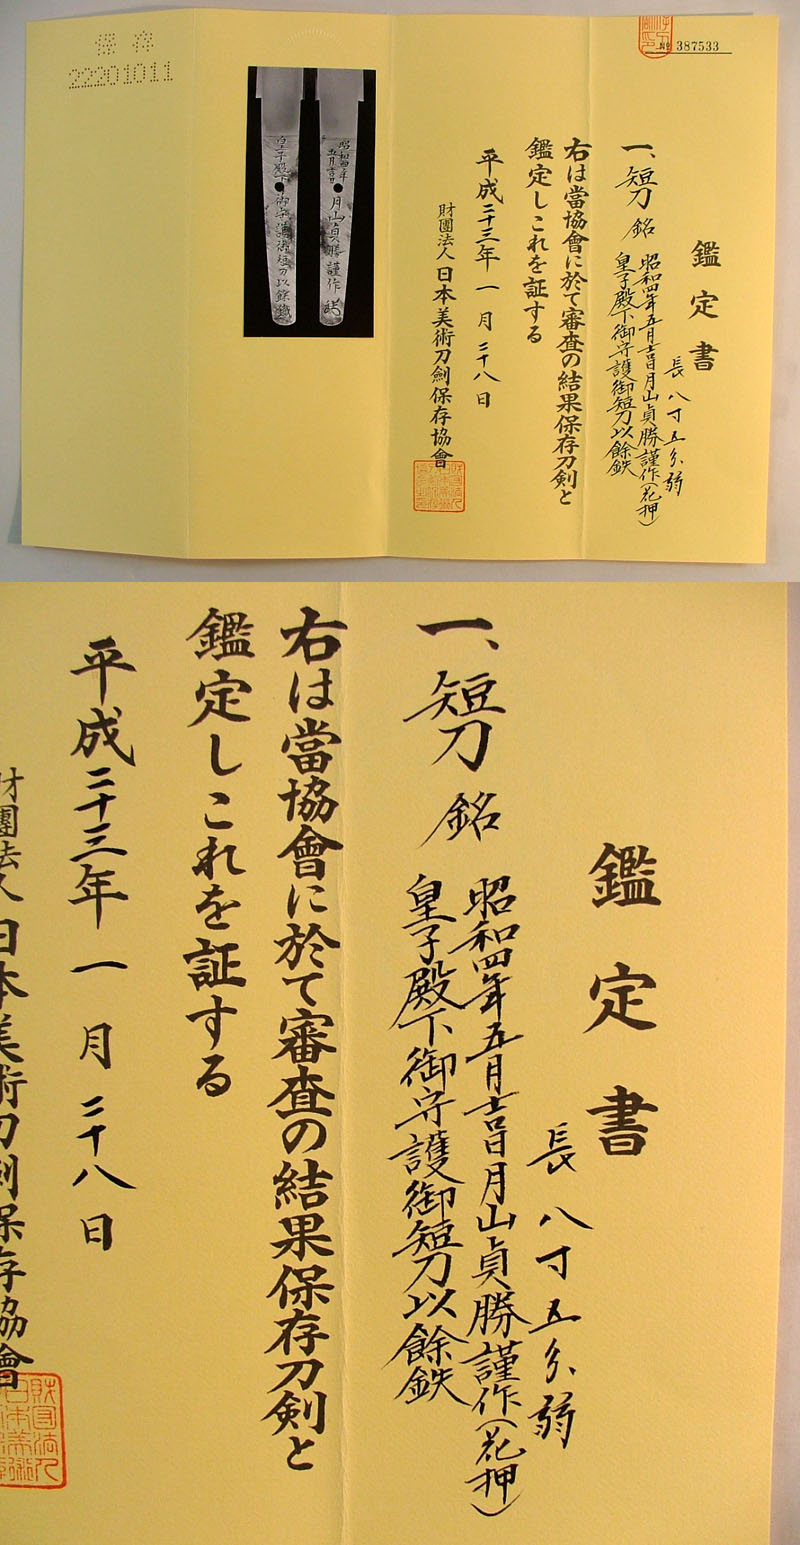 保存
22201011
No 387533
鑑定書
長八寸五分弱
一、短刀 銘 昭和四年五月吉日月山貞勝謹作(花押)
皇子殿下御守護御短刀以餘鉄
右は當協會に於て審査の結果保存刀剣と
鑑定しこれを証する
平成二十三年一月二十八日
財團法人日本美術刀劍保存協會
昭和四年
五月吉日
月山貞勝謹作
皇子殿下御守護御短刀以餘鐵
鑑定書
長八寸五分弱
一、短刀 銘 昭和四年五月吉日月山貞勝謹作(花押)
皇子殿下御守護御短刀以餘鉄
右は當協會に於て審査の結果保存刀剣と
鑑定しこれを証する
平成二十三年一月二十八日
財團法人日本美術刀劍保存協會